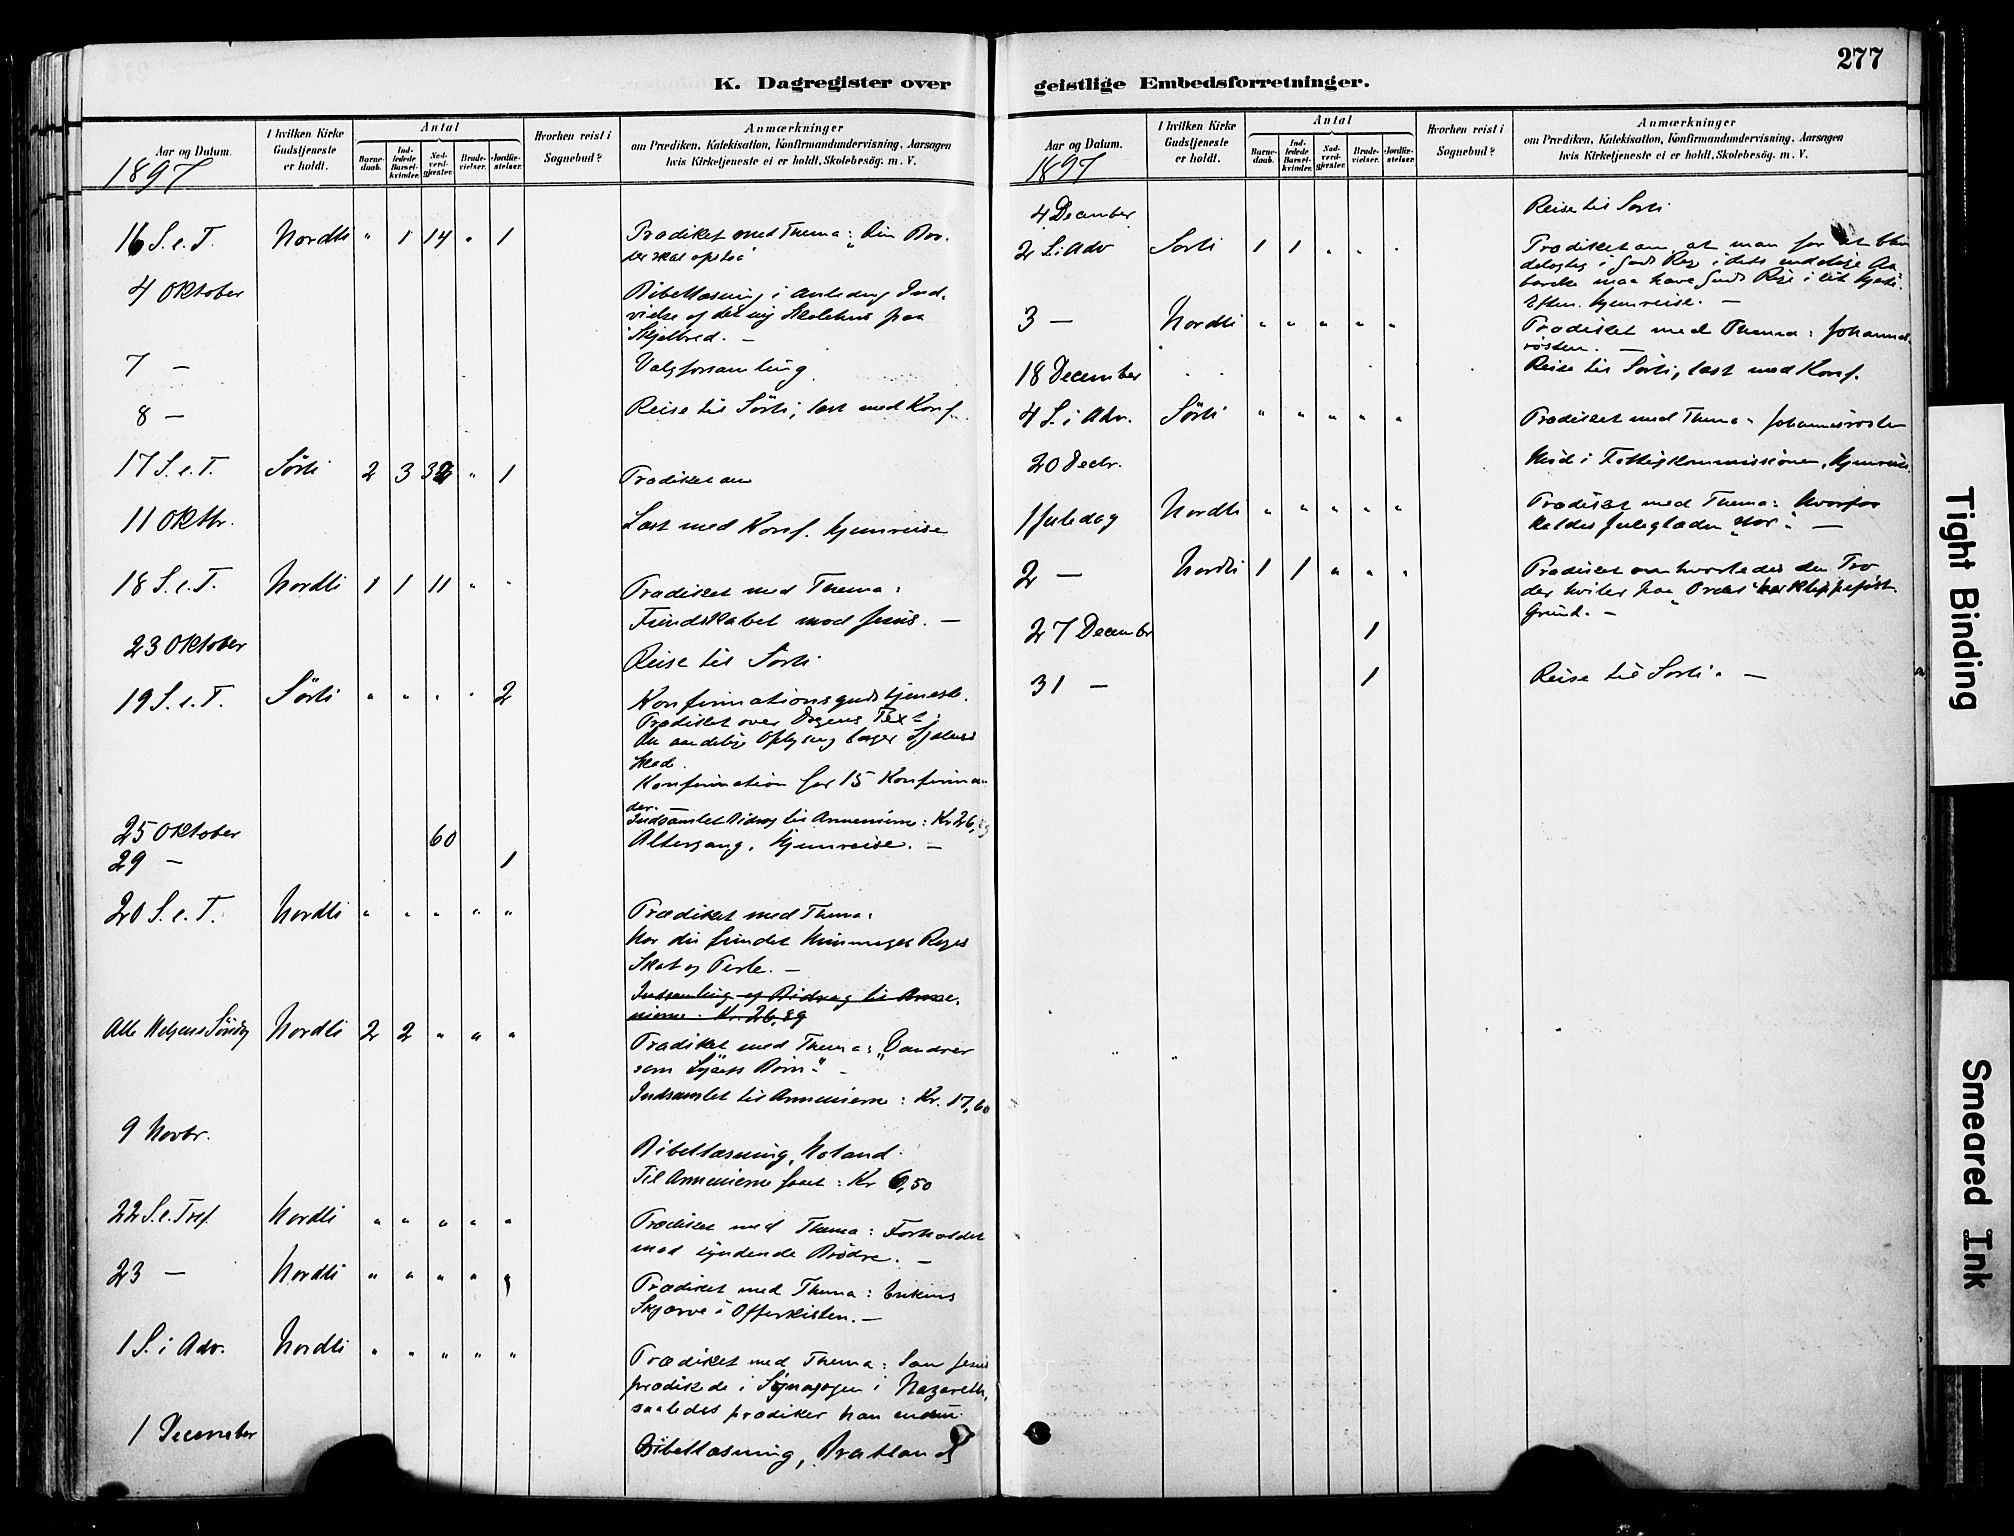 277
K. Dagregister over
geistlige Embedsforretninger.
Aar og Datum.
I hvilken Kirke Gudstjeneste er holdt.
Antal
Barnedaab.
Indledede Barselkvinder.
Nadverdgjæster.
Brudevielser.
Jordfæstelser.
Hvorhen reist i Sognebud?
Anmærkninger
om Prædiken, Katekisation, Konfirmandundervisning, Aarsagen
hvis Kirketjeneste ei er holdt, Skolebesøg. m. V.
1897
16 S. e. T. Nordli " 1 14 " 1 Prædiket med Thema: "Din Bro-
der skal opstaa"
4 Oktober Bibellæsning i Anledng Ind-
vielse af det ny Skolehus paa
Skjelbred. —
7 — Valgforsamling
8 — Reise til Sörli, læst med Konf.
17 S. e. T. Sörli 2 3 32 " 1 Prædiket om
11 Oktbr. Læst med Konf. hjemreise
18 S. e. T. Nordli 1 1 11 " " Prædiket med Thema:
Fiendskabet mod Jesus. —
23 Oktober Reise til Sörli
19 S. e. T. Sörli " " " " 2 Konfirmationsgudstjeneste.
Prædiket over Dagens Text:
Den aandelige Oplysning Sjælens
Skad.
Konfirmation for 15 Konfirman-
der.
Indsamlet Bidrag til Armenierne: Kr 26,89
25 Oktober 60 Altergang. Hjemreise. —
29 — 1
20 S. e. T. Nordli " " " " " Prædiket med Thema:
Har du fundet Himmeriges Riges
Skat og Perle. —
Indsamling af Bidrag til Arme-
nierne: Kr. 26,89
Alle Helgens Søndag Nordli 2 2 " " " Prædiket med Thema: "Vandrer
som Lysets Börn" —
Indsamlet til Armenierne: Kr. 17,60
9 Novbr. Bibellæsning, Holand.
Til Armenierne faaet: Kr 6,50
22 S. e. Tref. Nordli " " " " " Prædiket med Thema: Forholdet
mod syndende Brødre. —
23 — Nordli " " " " " Prædiket med Thema: Enkens
Skjærve i Offerkisten. —
1 S. i Adv. Nordli " " " " " Prædiket med Thema: Som Jesus
prædikede i Synagogen i Nazareth,
saaledes prædiker han endnu
1 December Bibellæsning, Bratland
Aar og Datum.
I hvilken Kirke Gudstjeneste er holdt.
Antal
Barnedaab.
Indledede Barselkvinder.
Nadverdgjæster.
Brudevielser.
Jordfæstelser.
Hvorhen reist i Sognebud?
Anmærkninger
om Prædiken, Katekisation, Konfirmandundervisning, Aarsagen
hvis Kirketjeneste ei er holdt, Skolebesøg. m. V.
1897
4 December Reise til Sörli
2 S. i Adv Sörli 1 1 " " " Prædiket om, at man for at blive
delagtig i Guds Rige i dets endelige Aa-
barelse maa have Guds Rige i sit Hjerte.
Eftm. hjemreise. —
3 — Nordli " " " " " Prædiket med Thema: Johannes-
røsten. —
18 December Reise til Sörli, læst med Konf.
4 S. i Adv. Sörli " " " " " Prædiket med Thema: Johannesrøsten
20 Decbr. Möde i Fattigkommissionen, hjemreise
1 Juledag Nordli " " " " " Prædiket med Thema: Hvorfor
kaldes Juleglæden "stor". —
2 — Nordli 1 1 " " " Prædiket om hvorledes den Tro
der hviler paa "Ordet" har klippefast
Grund. —
27 Decembr 1
31 — 1 Reise til Sörli. —
Tight Binding
Smeared Ink